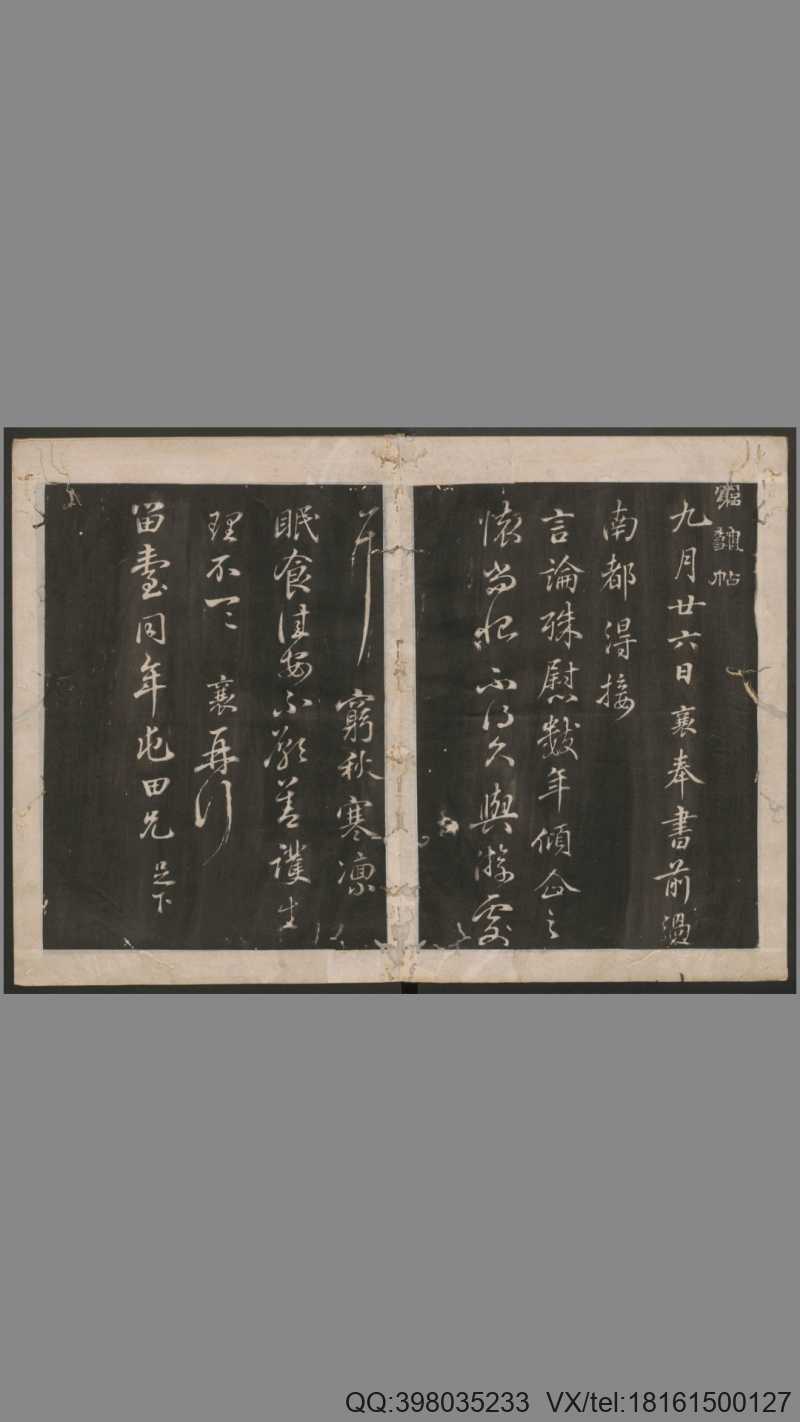 窮秋帖
九月廿六日襄奉書前過
南都得接
言論殊慰數年傾企之
懷尚恨不得久與游處
耳 窮秋寒凛
眠食佳安不 善護生
理不一一 襄再行
留臺同年屯田兄足下
QQ:398035233 VX/tel:18161500127